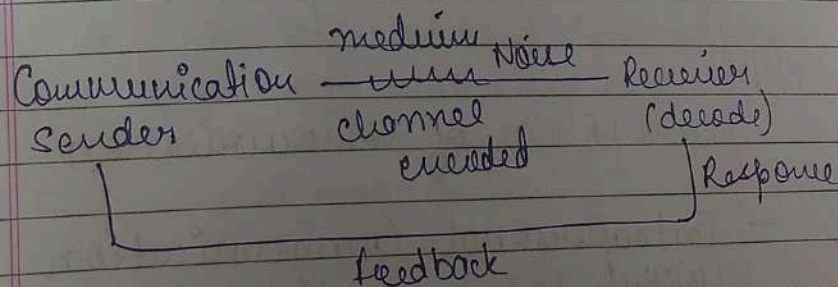 medium
Communication Noise Receiver
Sender channel (decode)
encoded Response
feedback